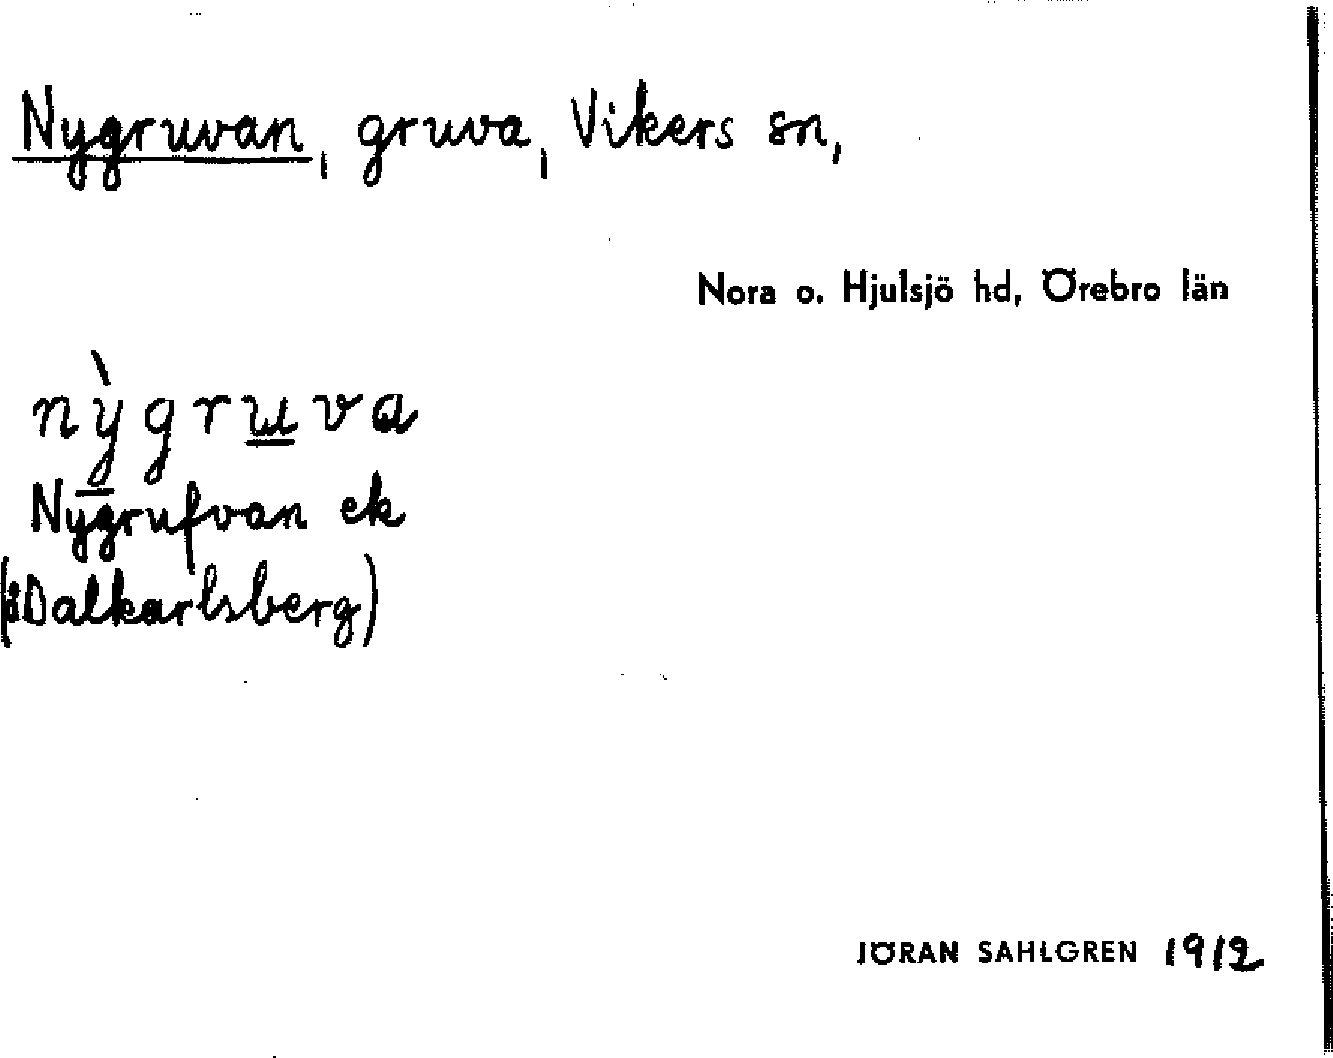 Nygruvan, gruva, Vikers sn,
Nora o. Hjulsjö hd, Örebro län
nỳgruva
Nygrufvan ek
(å Dalkarlsberg)
JÖRAN SAHLGREN 1912